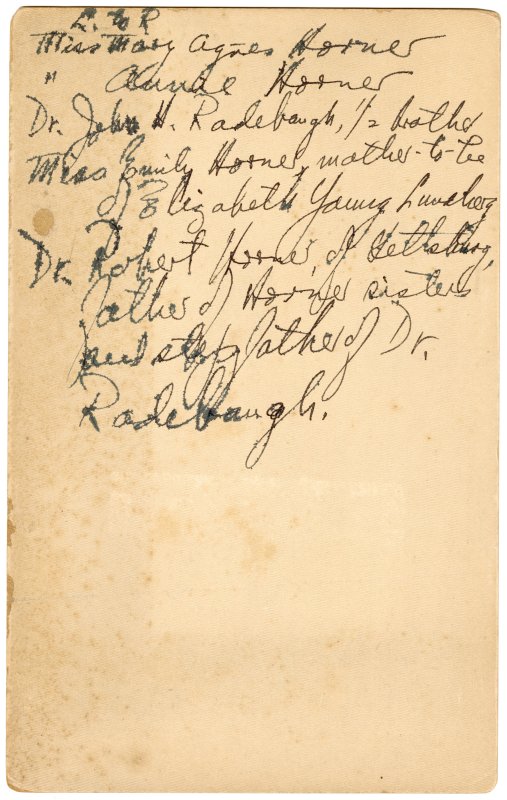 L. to R
Miss Mary Agnes Horner
" Annie Horner
Dr. John H. Radebaugh, 1/2 brother
Miss Emily Horner, mother-to-be
of Elizabeth Young
Dr. Robert Horner, of Gettsburg,
father of Horner sisters
and step father of Dr.
Radebaugh.